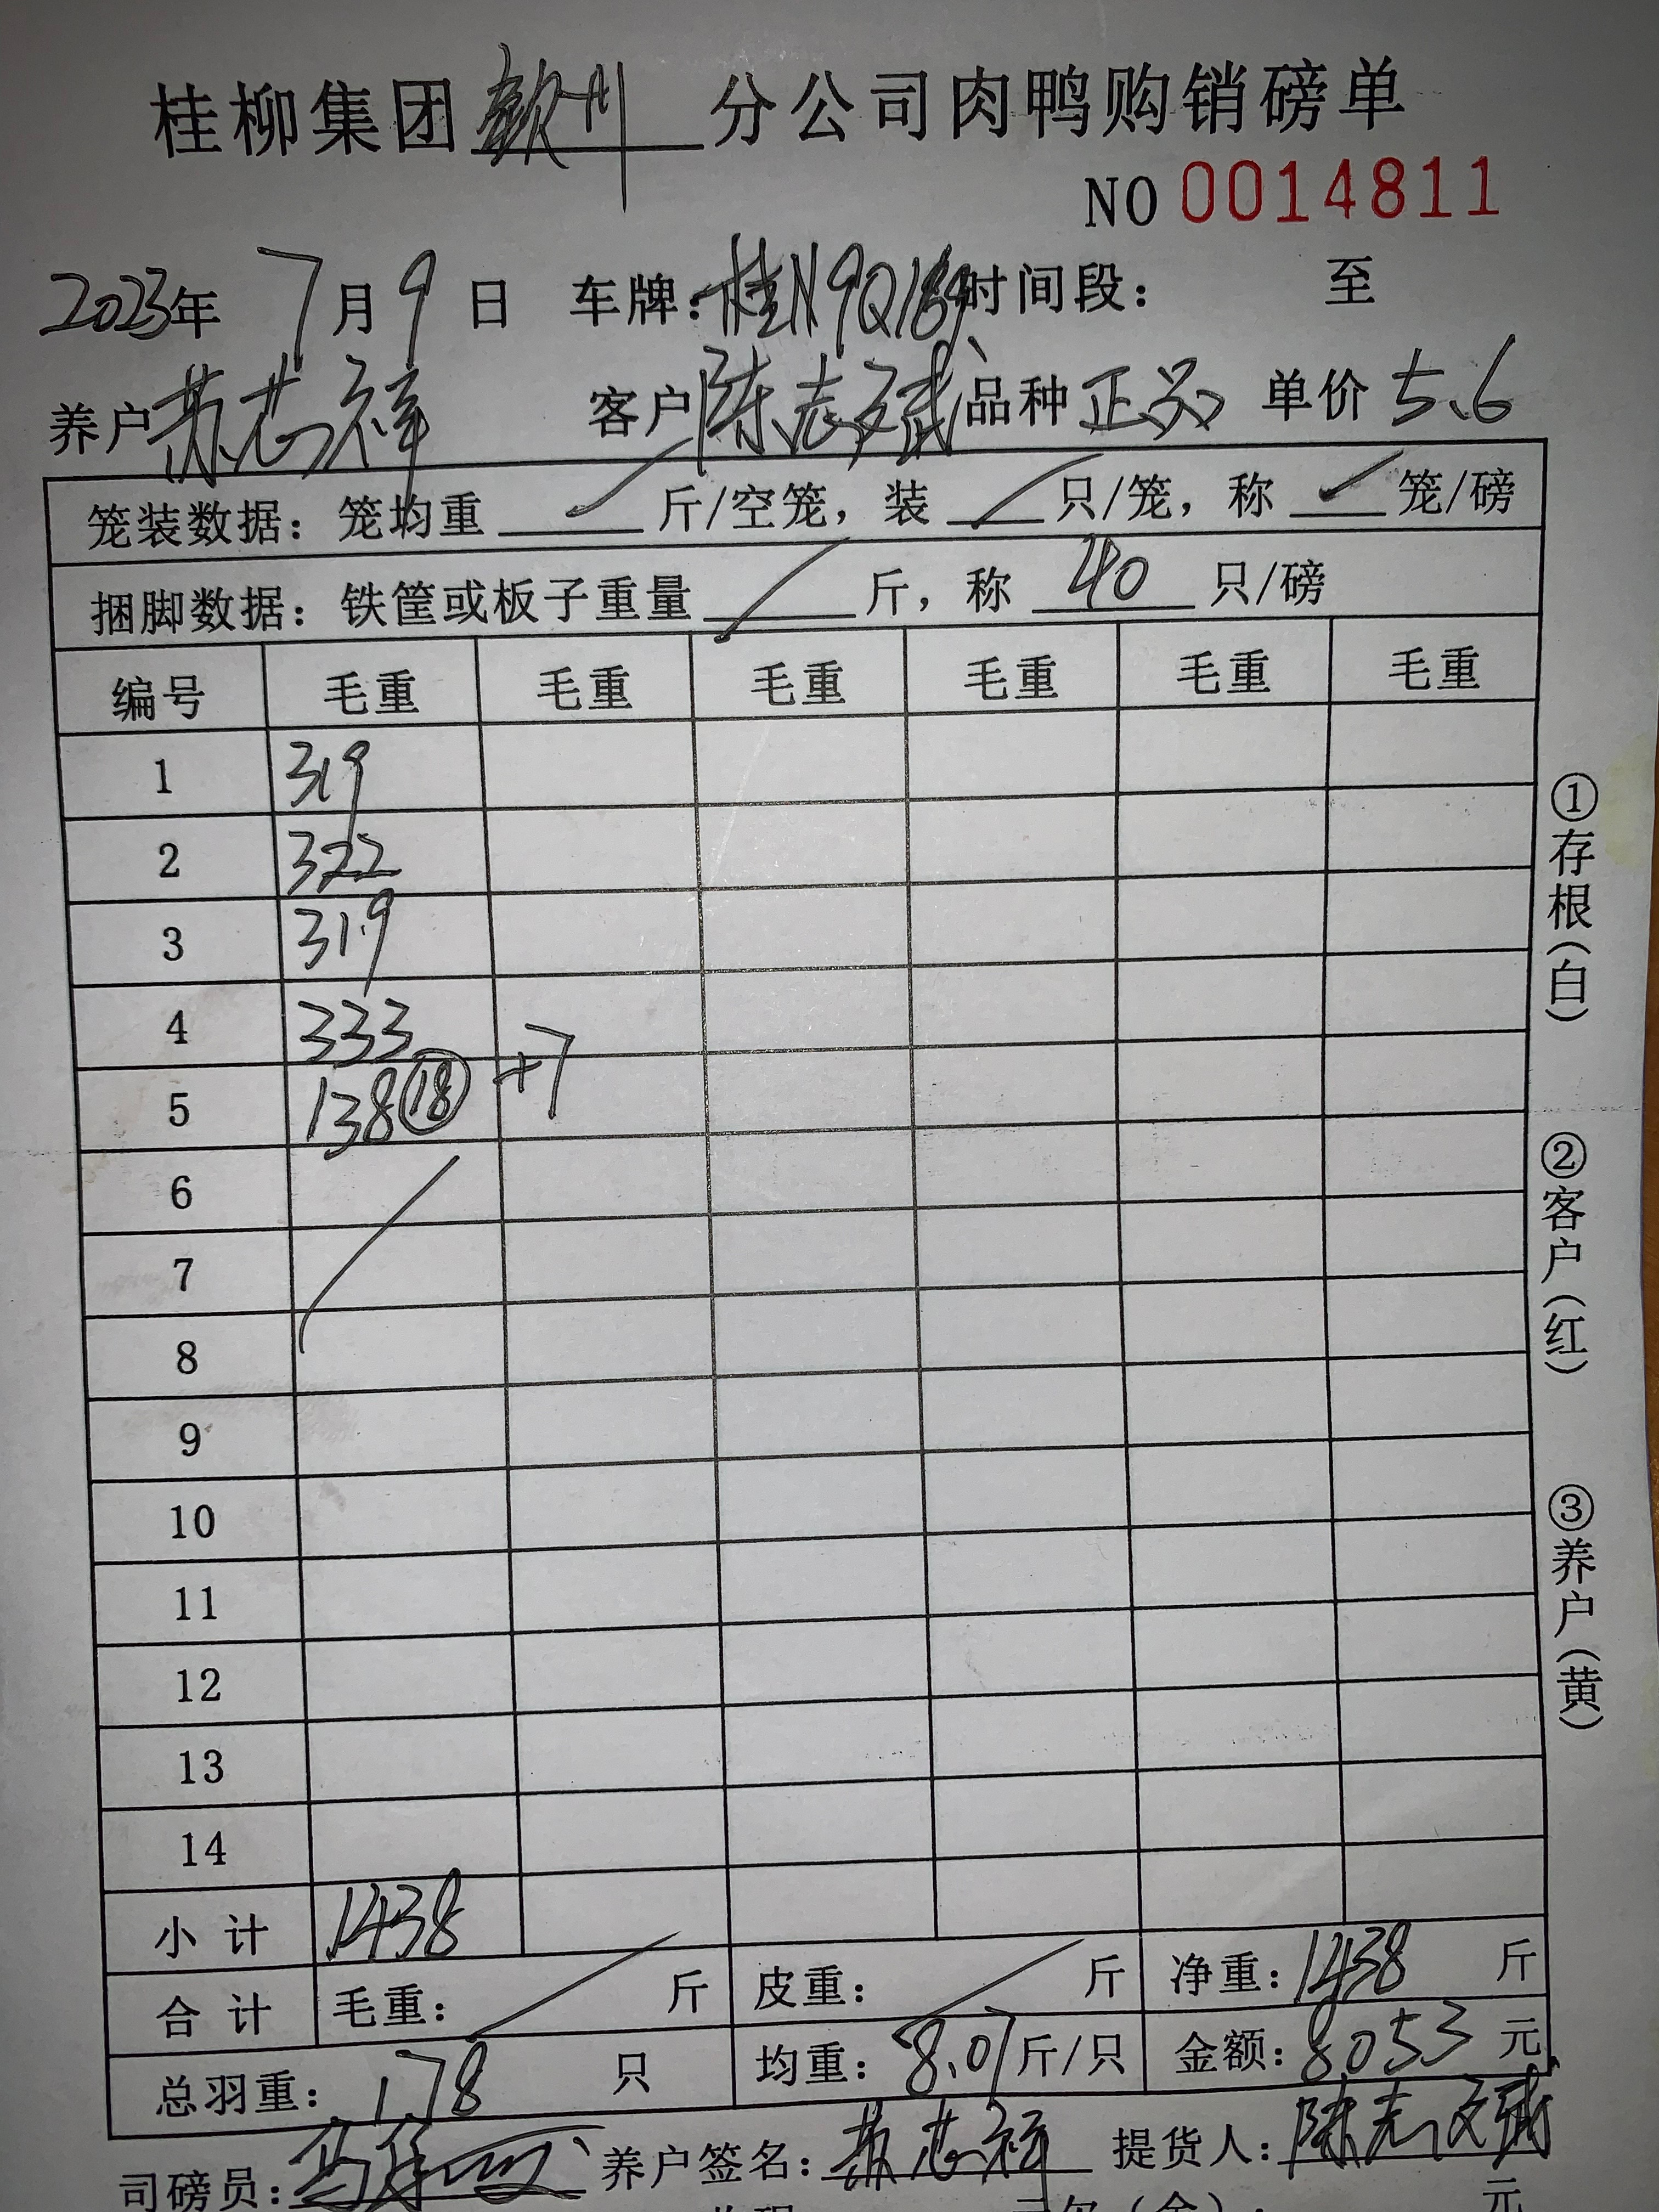 桂柳集团钦州分公司肉鸭购销磅单
NO 0014811
2023年 7月9日 车牌：桂N9Q189 时间段： 至
养户苏芯祥 客户陈志斌 品种正品 单价5.6
笼装数据：笼均重 / 斤/空笼，装 / 只/笼，称 / 笼/磅
捆脚数据：铁筐或板子重量 / 斤，称 40 只/磅
编号 毛重 毛重 毛重 毛重 毛重 毛重
1 319
2 322
3 319
4 333
5 138 ⑱ +7
6
7
8
9
10
11
12
13
14
小计 1438
合计 毛重： / 斤 皮重： / 斤 净重：1438 斤
总羽重：178 只 均重：8.07斤/只 金额：8053元
司磅员： 养户签名：苏芯祥 提货人：陈志斌
元
①存根（白）
②客户（红）
③养户（黄）